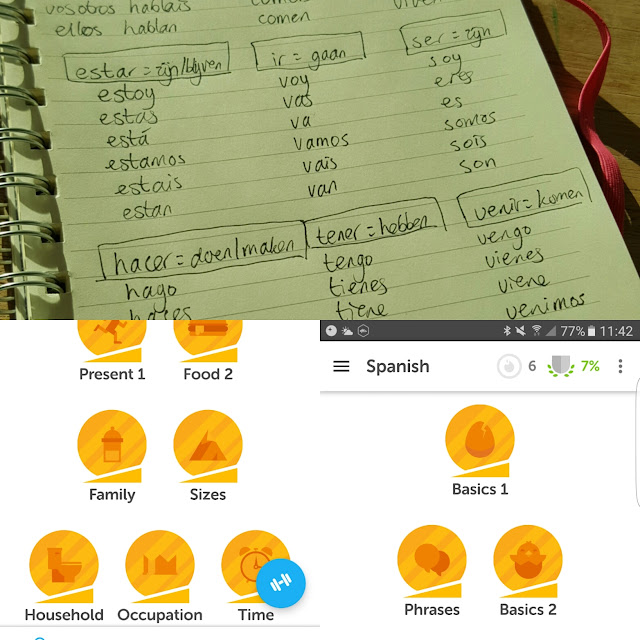 vosotros hablais
ellos hablan comen
estar = zijn/blijven ir = gaan ser = zijn
estoy voy soy
estas vas eres
está va es
estamos vamos somos
estais vais sois
estan van son
hacer = doen/maken tener = hebben venir = komen
hago tengo vengo
haces tienes vienes
tiene viene
venimos
Present 1 Food 2
Family Sizes
Household Occupation Time
77% 11:42
Spanish 6 7%
Basics 1
Phrases Basics 2